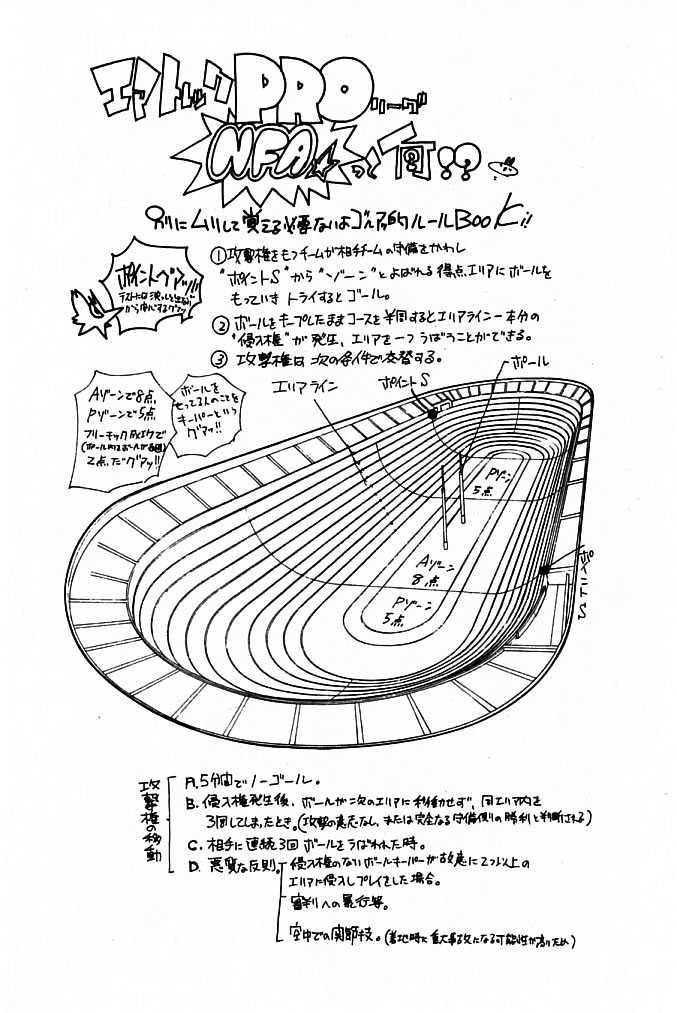 エア・トレック PRO リーグ
NFA☆って何!?
別にムリして覚える必要ないよゴルァ的ルールBooK!!
ポイントグアッ!!
①攻撃権をもつチームが相手チームの守備をかわし
"ポイントS"から"ゾーン"とよばれる得点エリアにボールを
もっていきトライするとゴール。
②ボールをキープしたままコースを半周するとエリアライン一本分の
"侵入権"が発生、エリアを一つうばうことができる。
③攻撃権は次の条件で交替する。
Aゾーンで8点、
Pゾーンで5点
フリーキック成功で
2点、だグアッ!!
ボールを
もってる人のことを
キーパーという
グアッ!!
エリアライン
ポイントS
ポール
Pゾーン
5点
Aゾーン
8点
Pゾーン
5点
ポイントS
攻撃権の移動
A. 5分間でノーゴール。
B. 侵入権発生後、ボールが次のエリアに移動せず、同エリア内を
3回してしまったとき。(攻撃の意志なし、または完全なる守備側の勝利と判断される)
C. 相手に連続3回ボールをうばわれた時。
D. 悪質な反則。
侵入権のないボールキーパーが故意に2つ以上の
エリアに侵入しプレイをした場合。
審判への暴行等。
空中での関節技。(着地時に重大事故になる可能性が高いため)